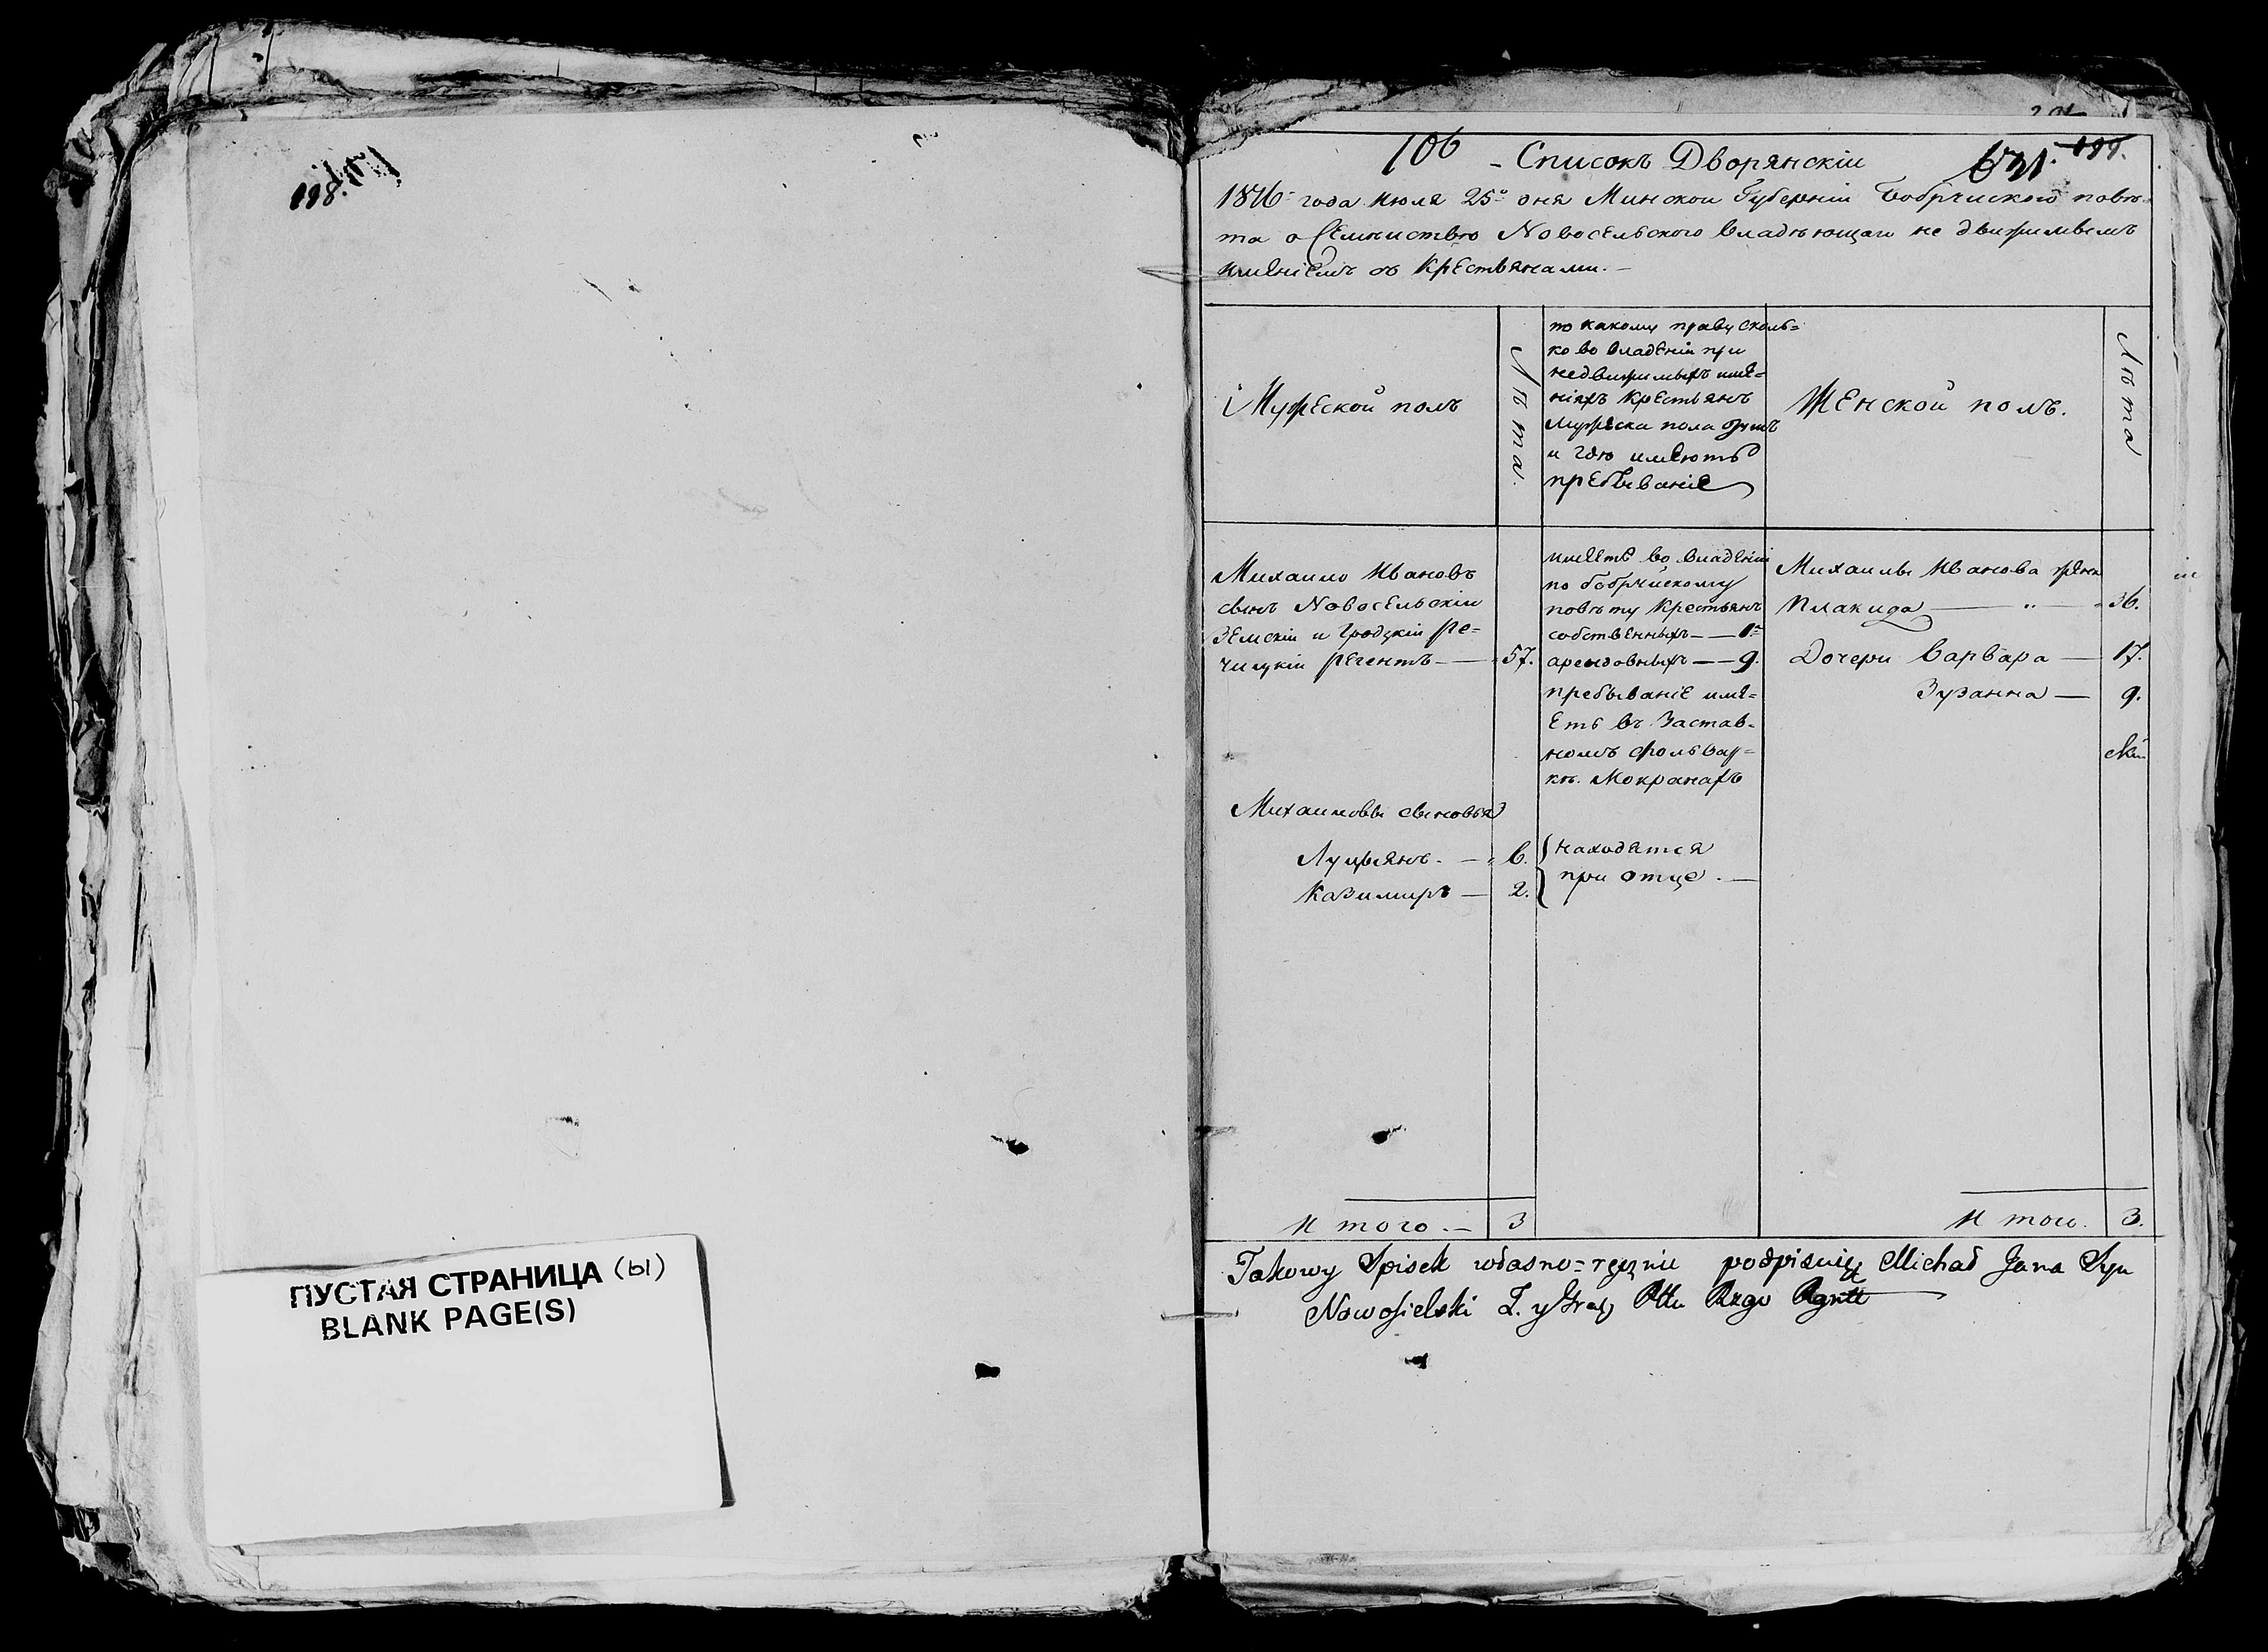 198.
ПУСТАЯ СТРАНИЦА (ы)
BLANK PAGE(S)
106 - Списокъ Дворянскіи
199.
года июля 25º дня Минскои Губерніи Бобруиского повѣ-
та о Семѣиствѣ Новосельского владѣющаго не движимымъ
имѣніемъ съ Крестьянами. -
Мужеской полъ
Лѣта.
по какому праву сколь=
ко во владеніи при
недвижимыхъ име=
ніяхъ крестьянъ
мужеска пола
и гдѣ имеютъ
пребываніе
Женской полъ.
Лѣта
Михаило Ивановъ
сынъ Новосельскіи
Земскіи и Гродзкіи Ре=
чицкіи регентъ — 57.
имеетъ во владеніи
по бобруйскому
повѣту Крестьянъ
собственныхъ — 1
арендовныхъ — 9.
пребываніе име=
етъ въ Застав-
номъ фольвар=
кѣ. Мокранахъ
Михаилы Иванова жена
Плакида — „ — 36.
Дочери Варвара — 17.
Зузанна — 9.
Михаиловы сыновья
Луцыянъ. — 6.
Казимиръ — 2.
находятся
при отце. —
И того. — 3
И того. 3.
Takowy Spisek własno=ręcznie podpisuię Michał Jana Syn
Nowosielski Z. y Grodz Pttu Rzgo Rgntt